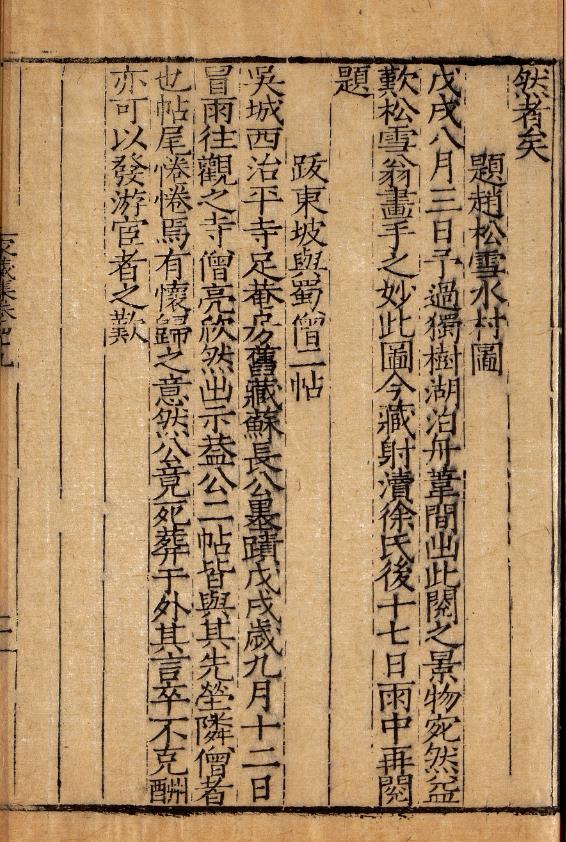 然者矣
題趙松雪水村圖
戊戌八月三日予過獨樹湖泊舟葦間出此閱之景物宛然益
歎松雪翁畫手之妙此圖今藏射瀆徐氏後十七日雨中再閱
題
跋東坡與蜀僧二帖
吳城西治平寺足菴房舊藏蘇長公墨蹟戊戌歲九月十二日
冒雨往觀之寺僧亮欣然出示葢公二帖皆與其先塋隣僧者
也帖尾惓惓焉有懷歸之意然公竟死葬于外其言卒不克酬
亦可以發游宦者之歎
藏集卷